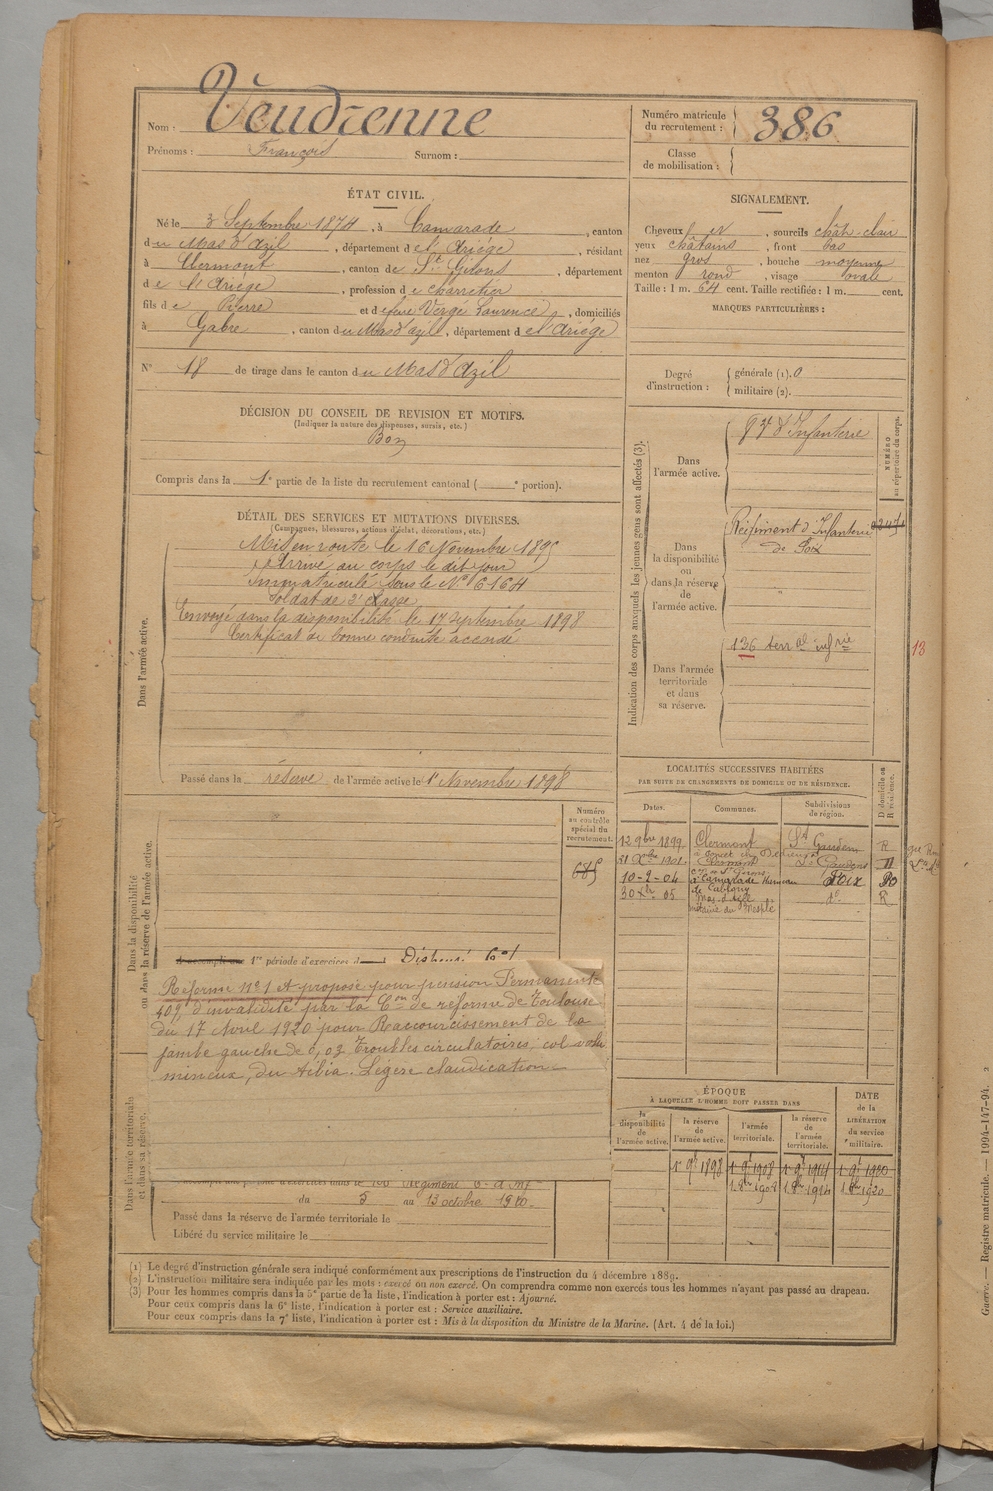 Nom : Vendrenne
Prénoms : François Surnom :
Numéro matricule du recrutement : 386
Classe de mobilisation :
ÉTAT CIVIL.
Né le 3 Septembre 1874, à Camarade, canton
du Mas d'Azil, département de l'Ariège, résidant
à Clermont, canton de St Girons, département
de l'Ariège, profession de charretier
fils de Pierre et de feue Verge Laurence, domiciliés
à Gabre, canton du Mas d'azil, département de l'Ariège
N° 18 de tirage dans le canton du Mas d'Azil
DÉCISION DU CONSEIL DE REVISION ET MOTIFS.
(Indiquer la nature des dispenses, sursis, etc.)
Bon
Compris dans la 1e partie de la liste du recrutement cantonal ( e portion).
SIGNALEMENT.
Cheveux et, sourcils chât-clair
yeux châtains, front bas
nez gros, bouche moyenne
menton rond, visage ovale
Taille : 1 m. 64 cent. Taille rectifiée : 1 m. cent.
MARQUES PARTICULIÈRES :
Degré d'instruction : générale (1). 0
militaire (2).
DÉTAIL DES SERVICES ET MUTATIONS DIVERSES.
(Campagnes, blessures, actions d'éclat, décorations, etc.)
Dans l'armée active.
Mis en route le 16 Novembre 1895
Arrivé au corps le dit jour
Immatriculé sous le N° 6164
Soldat de 2e classe
Envoyé dans la disponibilité le 17 septembre 1898
Certificat de bonne conduite accordé
Passé dans la réserve de l'armée active le 1er Novembre 1898
Indication des corps auxquels les jeunes gens sont affectés (3).
NUMÉRO au répertoire du corps.
Dans l'armée active.
d'Infanterie
Dans la disponibilité ou dans la réserve de l'armée active.
Régiment d'Infanterie
de Foix
Dans l'armée territoriale et dans sa réserve.
136 terral infrie
13
LOCALITÉS SUCCESSIVES HABITÉES
PAR SUITE DE CHANGEMENTS DE DOMICILE OU DE RÉSIDENCE.
Dates. Communes. Subdivisions de région. D domicile ou R résidence.
12 9bre 1899 Clermont St Gaudens R
21 Xbre 1901 Clermont St Gaudens
10-2-04 Camarade Foix
30 Xbre 05 Mas d'azil do R
Dans la disponibilité ou dans la réserve de l'armée active.
Numéro au contrôle spécial du recrutement.
685
A accompli une 1re période d'exercices d Dispensé
Réforme n°1 et proposé pour pension Permanente
40% d'invalidité par la Con de réforme de Toulouse
du 17 Avril 1920 pour Raccourcissement de la
jambe gauche de 0,03 Troubles circulatoires, col volu
mineux, du tibia. Légère claudication
Dans l'armée territoriale et dans sa réserve.
du 5 au 13 octobre 1910
Passé dans la réserve de l'armée territoriale le
Libéré du service militaire le
ÉPOQUE
À LAQUELLE L'HOMME DOIT PASSER DANS
DATE de la LIBÉRATION du service militaire.
la disponibilité de l'armée active. la réserve de l'armée active. l'armée territoriale. la réserve de l'armée territoriale.
1er 9bre 1898 1er 9bre 1908 1er 9bre 1914 1er 9bre 1920
1 8bre 1908 1 8bre 1914 1 8bre 1920
(1) Le degré d'instruction générale sera indiqué conformément aux prescriptions de l'instruction du 4 décembre 1889.
(2) L'instruction militaire sera indiquée par les mots : exercé ou non exercé. On comprendra comme non exercés tous les hommes n'ayant pas passé au drapeau.
(3) Pour les hommes compris dans la 5e partie de la liste, l'indication à porter est : Ajourné.
Pour ceux compris dans la 6e liste, l'indication à porter est : Service auxiliaire.
Pour ceux compris dans la 7e liste, l'indication à porter est : Mis à la disposition du Ministre de la Marine. (Art. 4 de la loi.)
Guerre. — Registre matricule. — 1094-147-94. 2